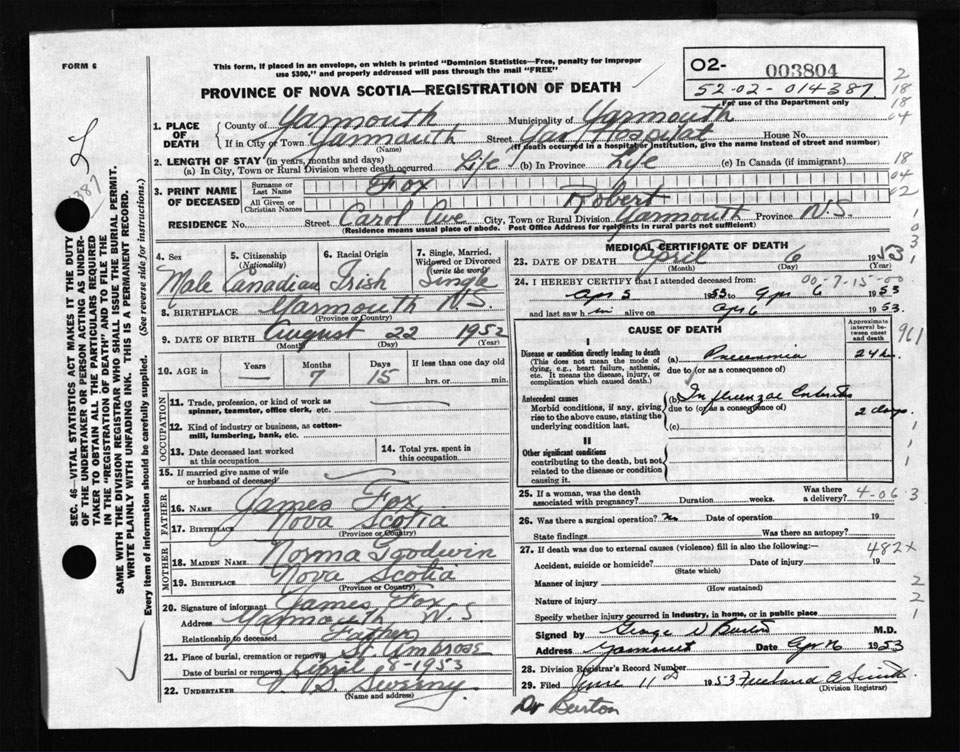 FORM 6
This form, if placed in an envelope, on which is printed "Dominion Statistics—Free, penalty for improper
use $300," and properly addressed will pass through the mail "FREE"
O2- 003804
52-02-014387
For use of the Department only
PROVINCE OF NOVA SCOTIA—REGISTRATION OF DEATH
2
18
18
04
18
04
02
1. PLACE OF DEATH
County of Yarmouth Municipality of Yarmouth
If in City or Town Yarmouth Street Yar Hospital House No.
(Name) (If death occurred in a hospital or institution, give the name instead of street and number)
2. LENGTH OF STAY (in years, months and days)
(a) In City, Town or Rural Division where death occurred Life (b) In Province Life (c) In Canada (if immigrant)
3. PRINT NAME OF DECEASED
Surname or Last Name Fox
All Given or Christian Names Robert
RESIDENCE No. Street Carol Ave City, Town or Rural Division Yarmouth Province N.S.
(Residence means usual place of abode. Post Office Address for residents in rural parts not sufficient)
4. Sex 5. Citizenship (Nationality) 6. Racial Origin 7. Single, Married, Widowed or Divorced (write the word)
Male Canadian Irish Single
8. BIRTHPLACE Yarmouth N.S.
(Province or Country)
9. DATE OF BIRTH August 22 1952
(Month) (Day) (Year)
10. AGE in Years Months Days If less than one day old
— 7 15 hrs. or min.
OCCUPATION
11. Trade, profession, or kind of work as
spinner, teamster, office clerk, etc.
12. Kind of industry or business, as cotton-
mill, lumbering, bank, etc.
13. Date deceased last worked
at this occupation
14. Total yrs. spent in
this occupation
15. If married give name of wife
or husband of deceased
FATHER
16. Name James Fox
17. Birthplace Nova Scotia
(Province or Country)
MOTHER
18. MAIDEN NAME Norma Goodwin
19. BIRTHPLACE Nova Scotia
(Province or Country)
20. Signature of informant James Fox
Address Yarmouth N.S.
Relationship to deceased Father
21. Place of burial, cremation or removal St Ambrose
Date of burial or removal April 8-1953
22. UNDERTAKER V. S. Sweeny
(Name and address)
MEDICAL CERTIFICATE OF DEATH
23. DATE OF DEATH April 6 1953
(Month) (Day) (Year)
24. I HEREBY CERTIFY that I attended deceased from 00-7-15-00
Apr 5 1953 to Apr 6 1953
and last saw him alive on Apr 6 1953.
CAUSE OF DEATH
Approximate interval between onset and death
961
I
Disease or condition directly leading to death (a) Pneumonia 24 h.
(This does not mean the mode of
dying, e.g., heart failure, asthenia,
etc. It means the disease, injury, or
complication which caused death.)
due to (or as a consequence of)
Antecedent causes (b) Influenzae
Morbid conditions, if any, giving
rise to the above cause, stating the
underlying condition last.
due to (or as a consequence of) 2 days.
(c)
II
Other significant conditions
contributing to the death, but not
related to the disease or condition
causing it.
25. If a woman, was the death
associated with pregnancy? Duration weeks. Was there
a delivery? 4-06 3
26. Was there a surgical operation? No Date of operation 19
State findings Was there an autopsy?
27. If death was due to external causes (violence) fill in also the following:—
482X
Accident, suicide or homicide? Date of injury 19
(State which)
Manner of injury
(How sustained)
Nature of injury
Specify whether injury occurred in industry, in home, or in public place
Signed by George W Burton M.D.
Address Yarmouth Date Apr 6 1953
28. Division Registrar's Record Number
29. Filed June 11th 1953 Freeland Smith
(Division Registrar)
Dr Burton
SEC. 46—VITAL STATISTICS ACT MAKES IT THE DUTY
OF THE UNDERTAKER OR PERSON ACTING AS UNDER-
TAKER TO OBTAIN ALL THE PARTICULARS REQUIRED
IN THE "REGISTRATION OF DEATH" AND TO FILE THE
SAME WITH THE DIVISION REGISTRAR WHO SHALL ISSUE THE BURIAL PERMIT.
WRITE PLAINLY WITH UNFADING INK. THIS IS A PERMANENT RECORD.
Every item of information should be carefully supplied. (See reverse side for instructions.)